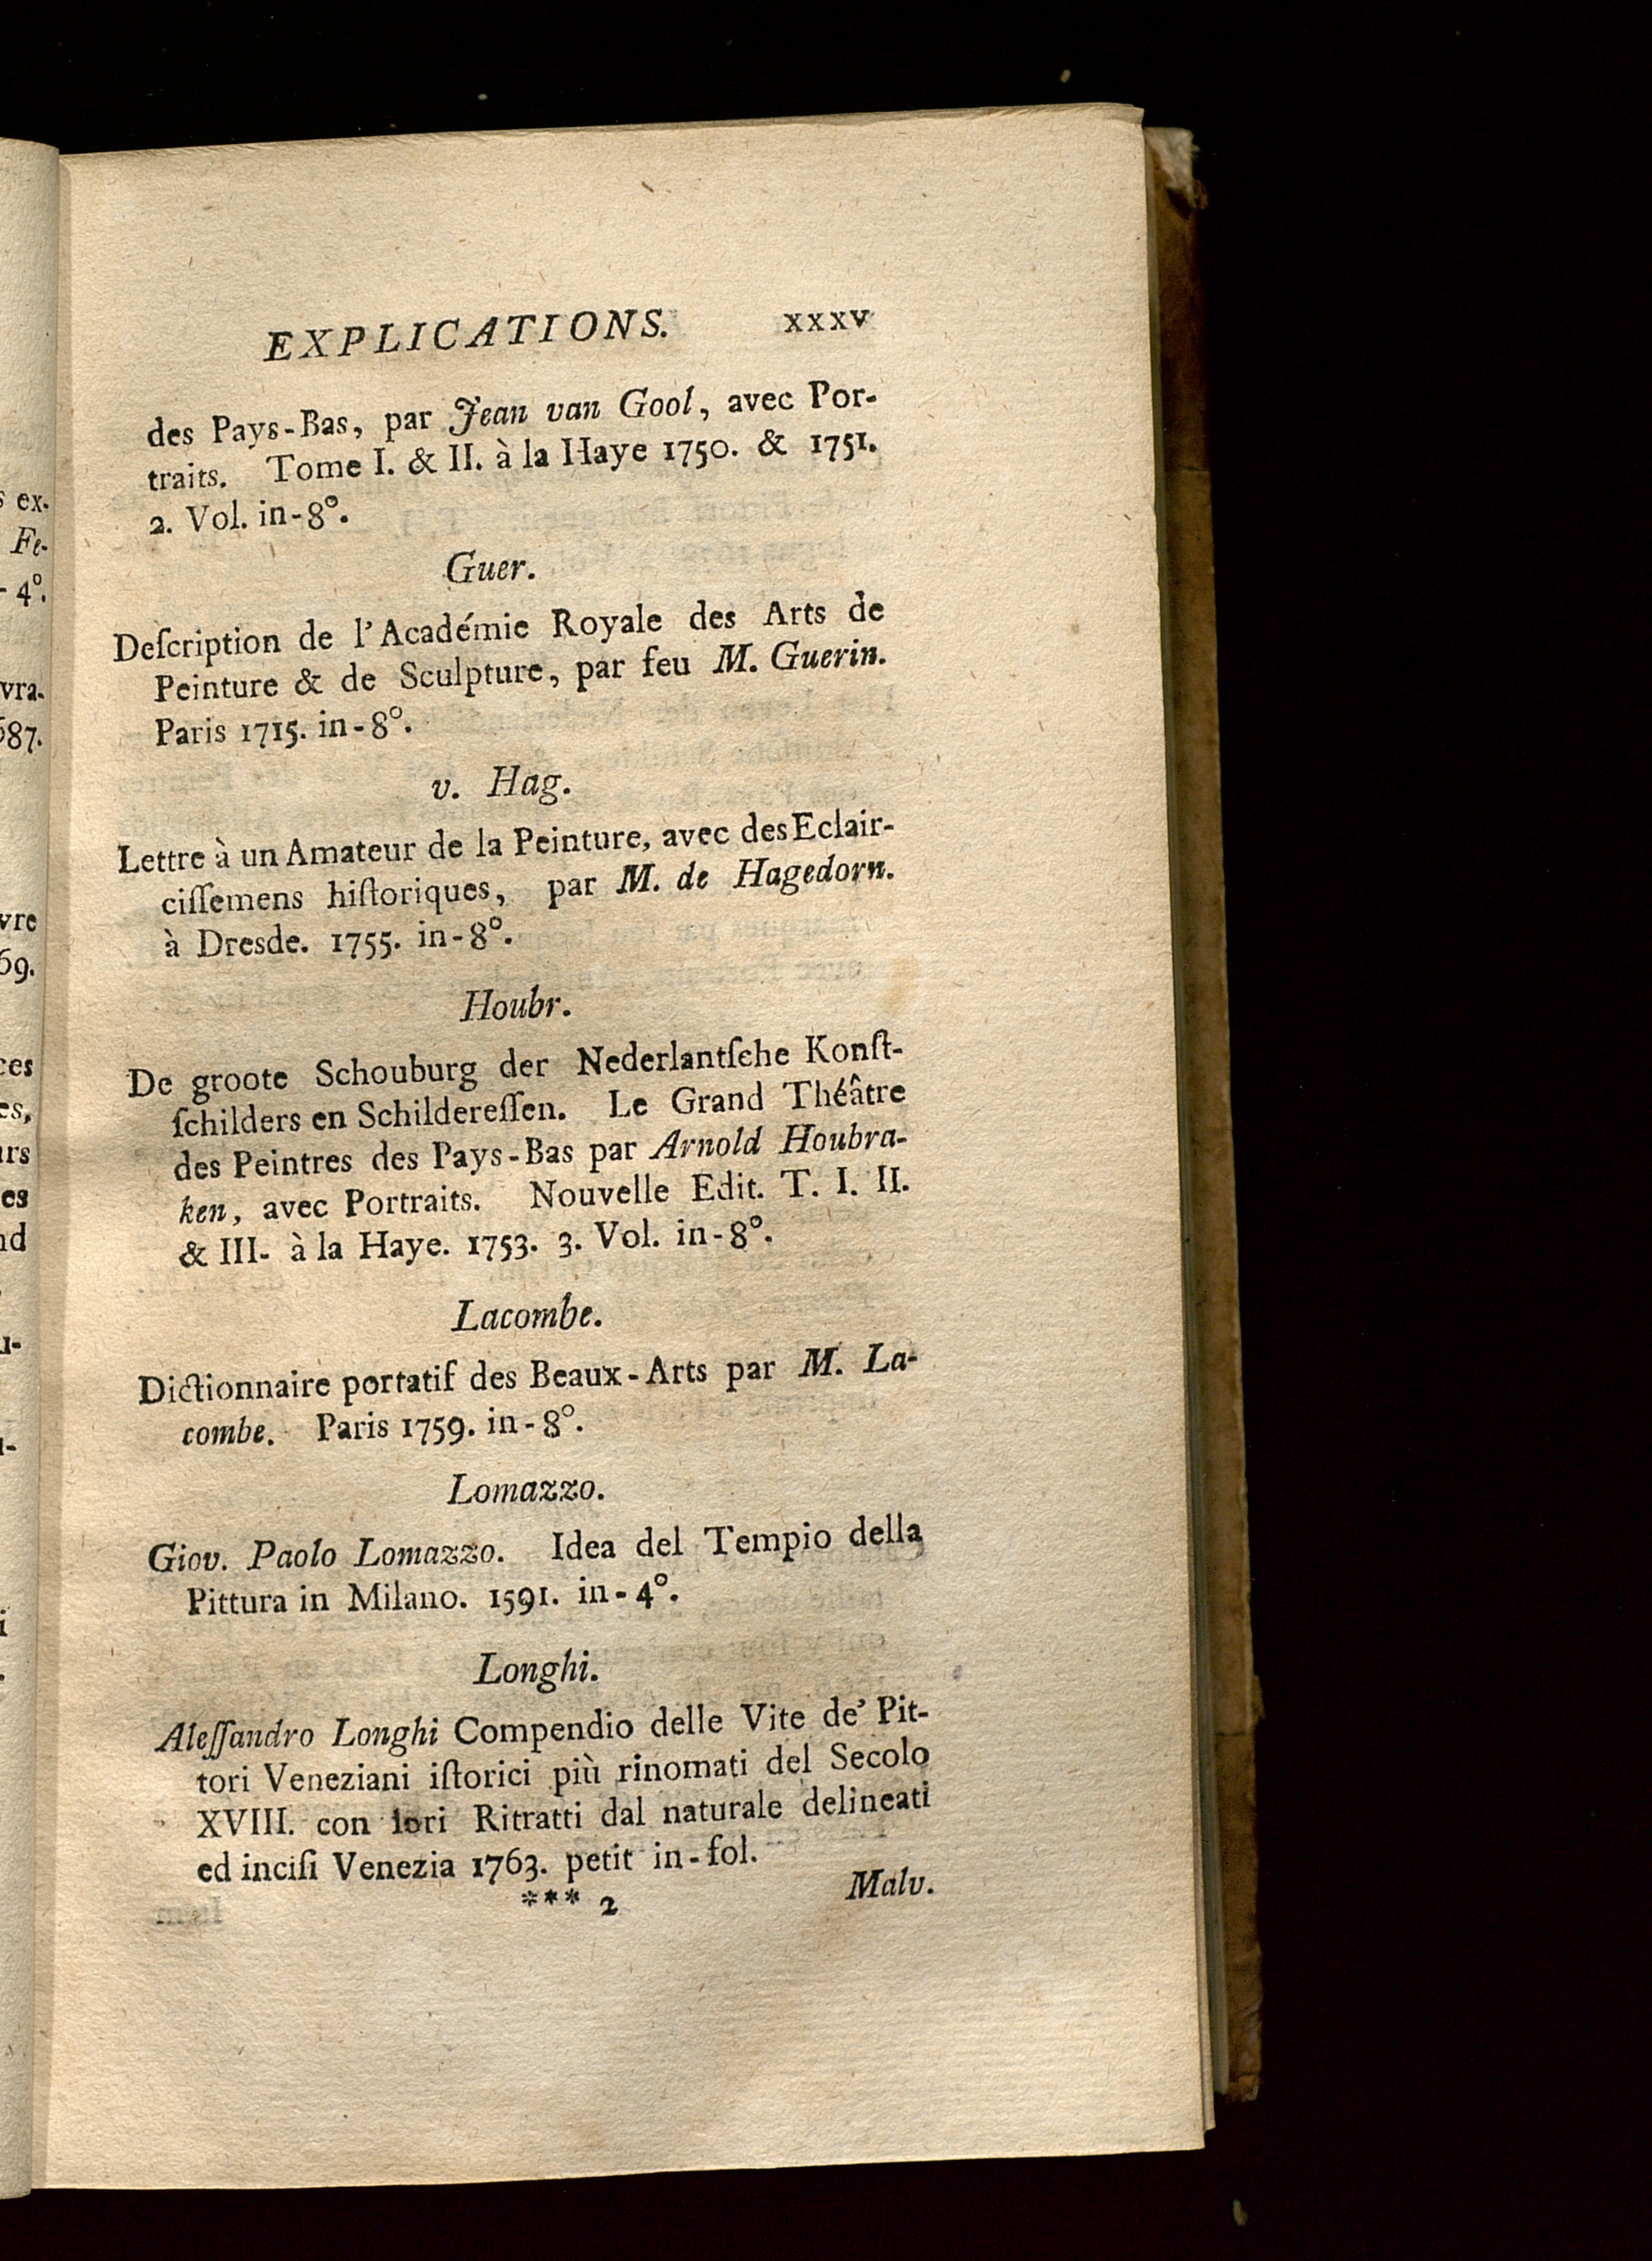 EXPLICATIONS. xxxv
des Pays-Bas, par Jean van Gool, avec Por-
traits. Tome I. & II. à la Haye 1750. & 1751.
2. Vol. in-8°.
Guer.
Deſcription de l'Académie Royale des Arts de
Peinture & de Sculpture, par feu M. Guerin.
Paris 1715. in-8°.
v. Hag.
Lettre à un Amateur de la Peinture, avec des Eclair-
ciſſemens hiſtoriques, par M. de Hagedorn.
à Dresde. 1755. in-8°.
Houbr.
De groote Schouburg der Nederlantſche Konſt-
ſchilders en Schildereſſen. Le Grand Théâtre
des Peintres des Pays-Bas par Arnold Houbra-
ken, avec Portraits. Nouvelle Edit. T. I. II.
& III. à la Haye. 1753. 3. Vol. in-8°.
Lacombe.
Dictionnaire portatif des Beaux-Arts par M. La-
combe. Paris 1759. in-8°.
Lomazzo.
Giov. Paolo Lomazzo. Idea del Tempio della
Pittura in Milano. 1591. in-4°.
Longhi.
Aleſſandro Longhi Compendio delle Vite de' Pit-
tori Veneziani iſtorici più rinomati del Secolo
XVIII. con lori Ritratti dal naturale delineati
ed inciſi Venezia 1763. petit in-fol.
*** 2 Malv.